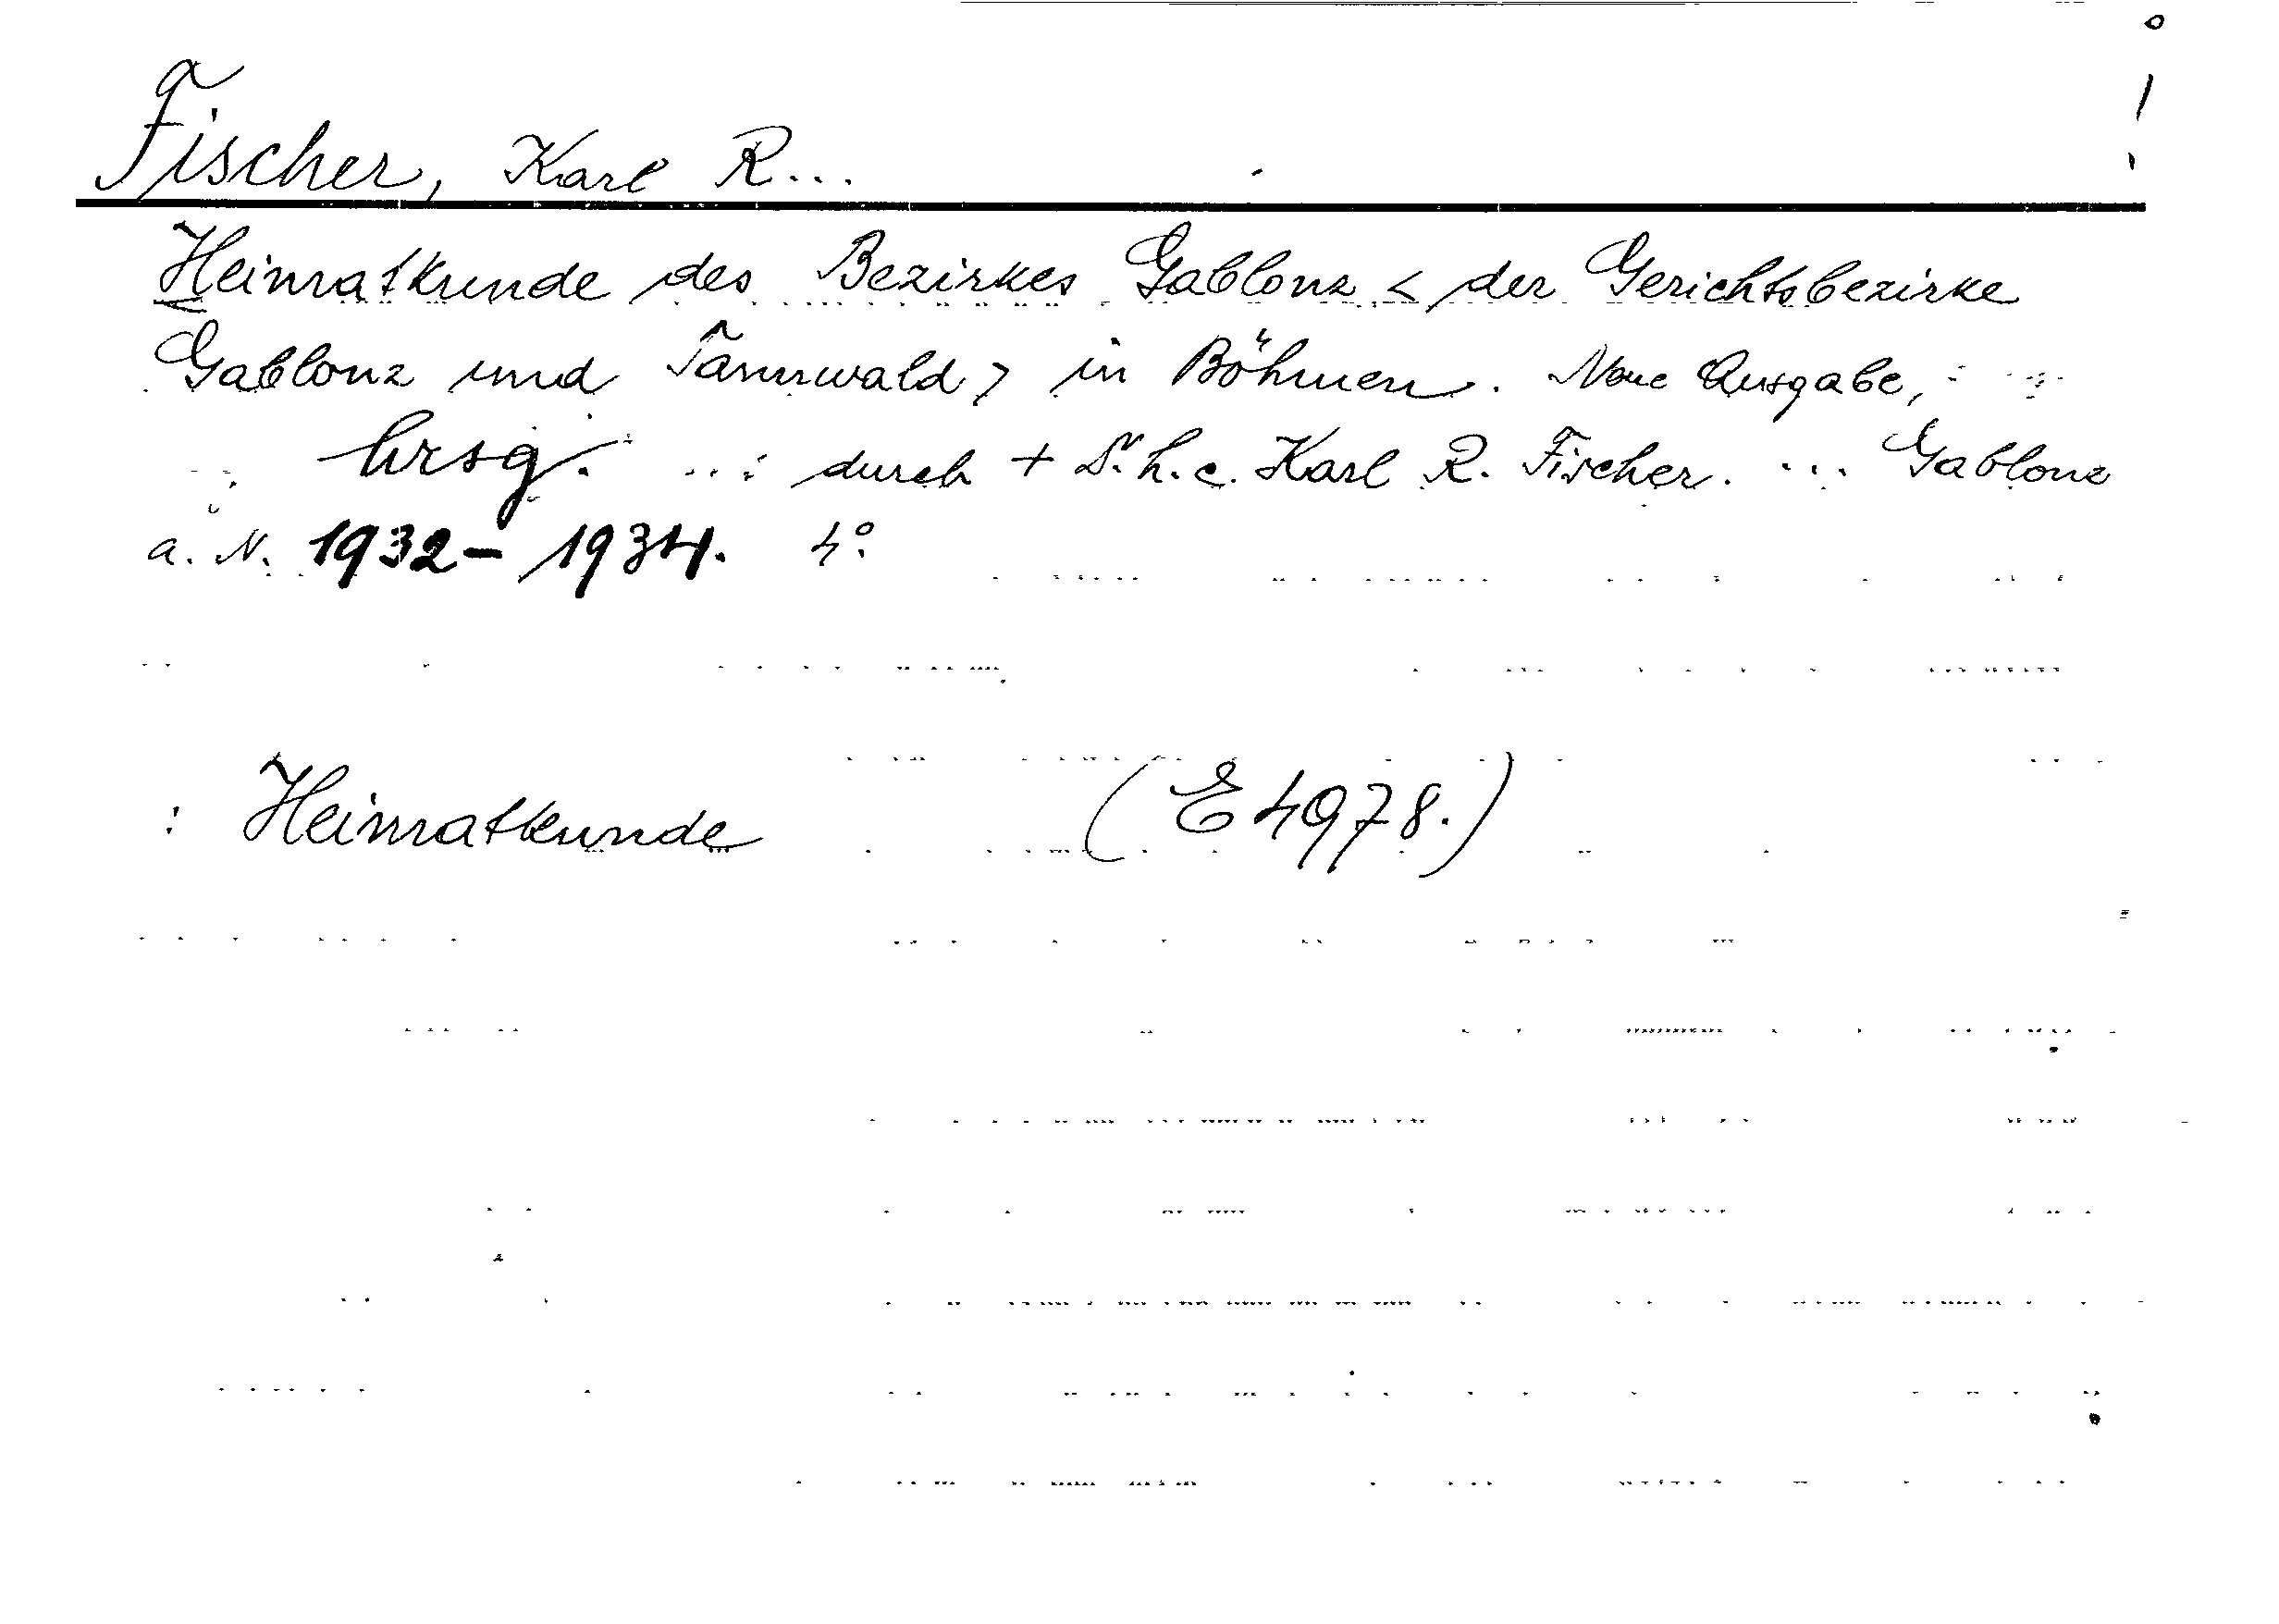 Fischer, Karl R...
Heimatkunde des Bezirkes Gablonz < der Gerichtsbezirke
Gablonz und Tannwald > in Böhmen. Neue Ausgabe,
hrsg. ... durch + Dr. h. c. Karl R. Fischer. ... Gablonz
a. N. 1932-1934. 4°.
: Heimatkunde (E 4978.)